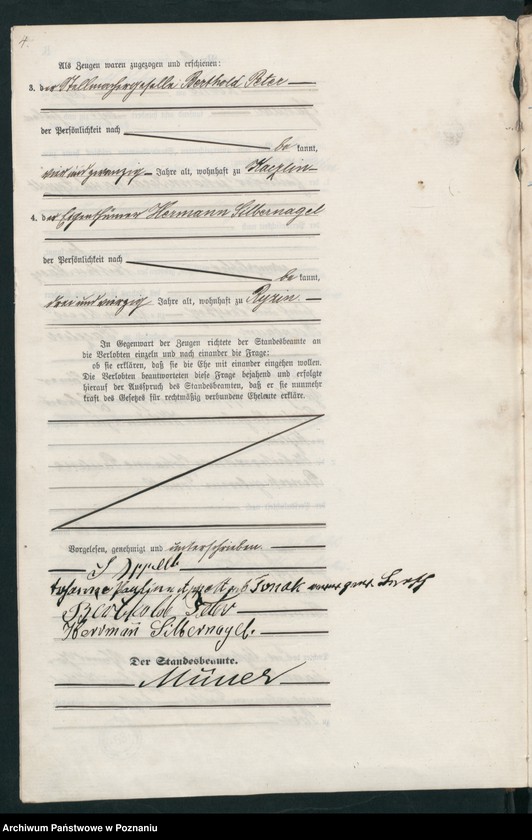 4.
Als Zeugen waren zugezogen und erschienen:
3. der Stellmachergeselle Berthold Peter
der Persönlichkeit nach
be kannt,
vierundzwanzig Jahre alt, wohnhaft zu Kaczlin
4. der Eigenthümer Hermann Silbernagel
der Persönlichkeit nach
be kannt,
dreiundvierzig Jahre alt, wohnhaft zu Ryzin
In Gegenwart der Zeugen richtete der Standesbeamte an
die Verlobten einzeln und nach einander die Frage:
ob sie erklären, daß sie die Ehe mit einander eingehen wollen.
Die Verlobten beantworteten diese Frage bejahend und erfolgte
hierauf der Ausspruch des Standesbeamten, daß er sie nunmehr
kraft des Gesetzes für rechtmäßig verbundene Eheleute erkläre.
Vorgelesen, genehmigt und unterschrieben.
Appelt
Pauline Appelt geb
Berthold Peter
Hermann Silbernagel.
Der Standesbeamte.
Archiwum Państwowe w Poznaniu